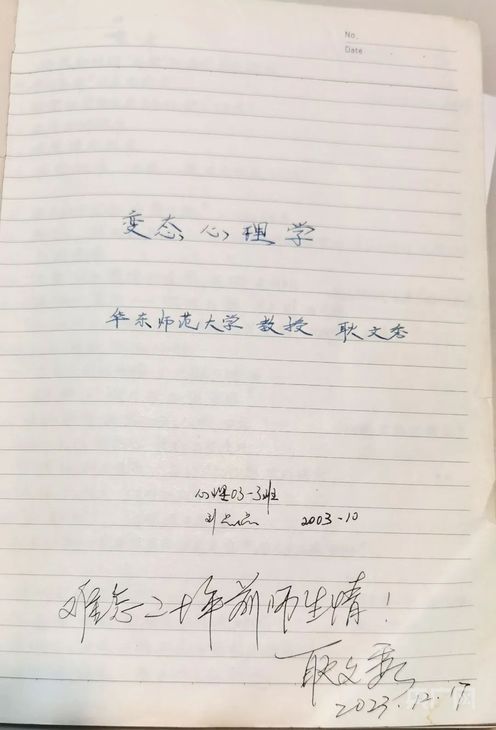 No.
Date
变态心理学
华东师范大学 教授 耿文秀
心理03-3班
2003-10
难忘二十年前师生情!
耿文秀
2023.12.17